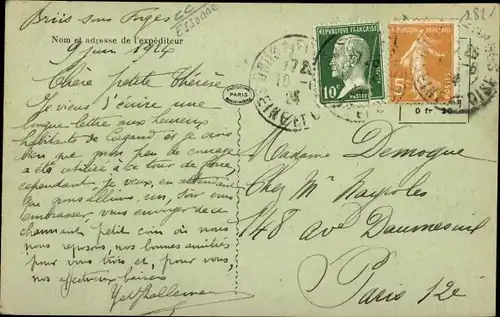 Briis sous Forges
CC
Essonne
Nom et adresse de l'expéditeur
9 juin 1924
Chère petite Thérèse
Je viens d'écrire une
longue lettre aux heureux
habitants de et je crois
bien que mon peu de courage
a été utilisé à ce tour de force,
cependant je veux, en attendant
que nous allions, un, soir vous
embrasser, vous envoyer de ce
charmant petit coin où nous
nous reposons, nos bonnes amitiés
pour vous trois et, pour vous,
nos affectueux baisers
PARIS
RÉPUBLIQUE FRANÇAISE
10c
PASTEUR
POSTES
RÉPUBLIQUE FRANÇAISE
5c
POSTES
0 fr 20
Madame Demoque
Chez Mr Nayrolles
148 av Daumesnil
Paris 12e